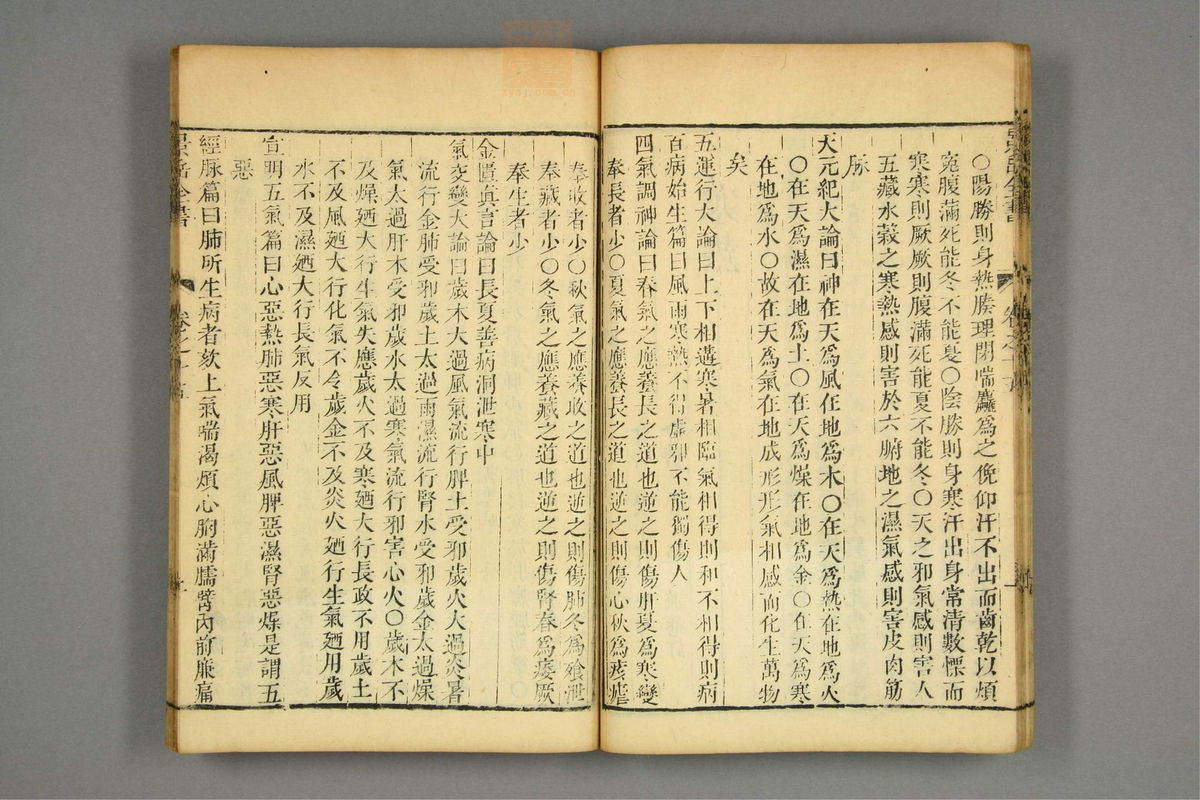 ○陽勝則身熱腠理閉喘麤爲之俛仰汗不出而齒乾以煩
寃腹滿死能冬不能夏○陰勝則身寒汗出身常清數慄而
寒寒則厥厥則腹滿死能夏不能冬○天之邪氣感則害人
五藏水穀之寒熱感則害於六腑地之濕氣感則害皮肉筋
脉
天元紀大論曰神在天爲風在地爲木○在天爲熱在地爲火
○在天爲濕在地爲土○在天爲燥在地爲金○在天爲寒
在地爲水○故在天爲氣在地成形形氣相感而化生萬物
矣
五運行大論曰上下相遘寒暑相臨氣相得則和不相得則病
百病始生篇曰風雨寒熱不得虛邪不能獨傷人
四氣調神論曰春氣之應養長之道也逆之則傷肝夏爲寒變
奉長者少○夏氣之應養長之道也逆之則傷心秋爲痎瘧
奉收者少○秋氣之應養收之道也逆之則傷肺冬爲飱泄
奉藏者少○冬氣之應養藏之道也逆之則傷腎春爲痿厥
奉生者少
金匱眞言論曰長夏善病洞泄寒中
氣交變大論曰歲木太過風氣流行脾土受邪歲火太過炎暑
流行金肺受邪歲土太過雨濕流行腎水受邪歲金太過燥
氣太過肝木受邪歲水太過寒氣流行邪害心火○歲木不
及燥廼大行生氣失應歲火不及寒廼大行長政不用歲土
不及風廼大行化氣不令歲金不及炎火廼行生氣廼用歲
水不及濕廼大行長氣反用
宣明五氣篇曰心惡熱肺惡寒肝惡風脾惡濕腎惡燥是謂五
惡
經脉篇曰肺所生病者欬上氣喘渴煩心胸滿臑臂內前廉痛
景岳全書
卷之一